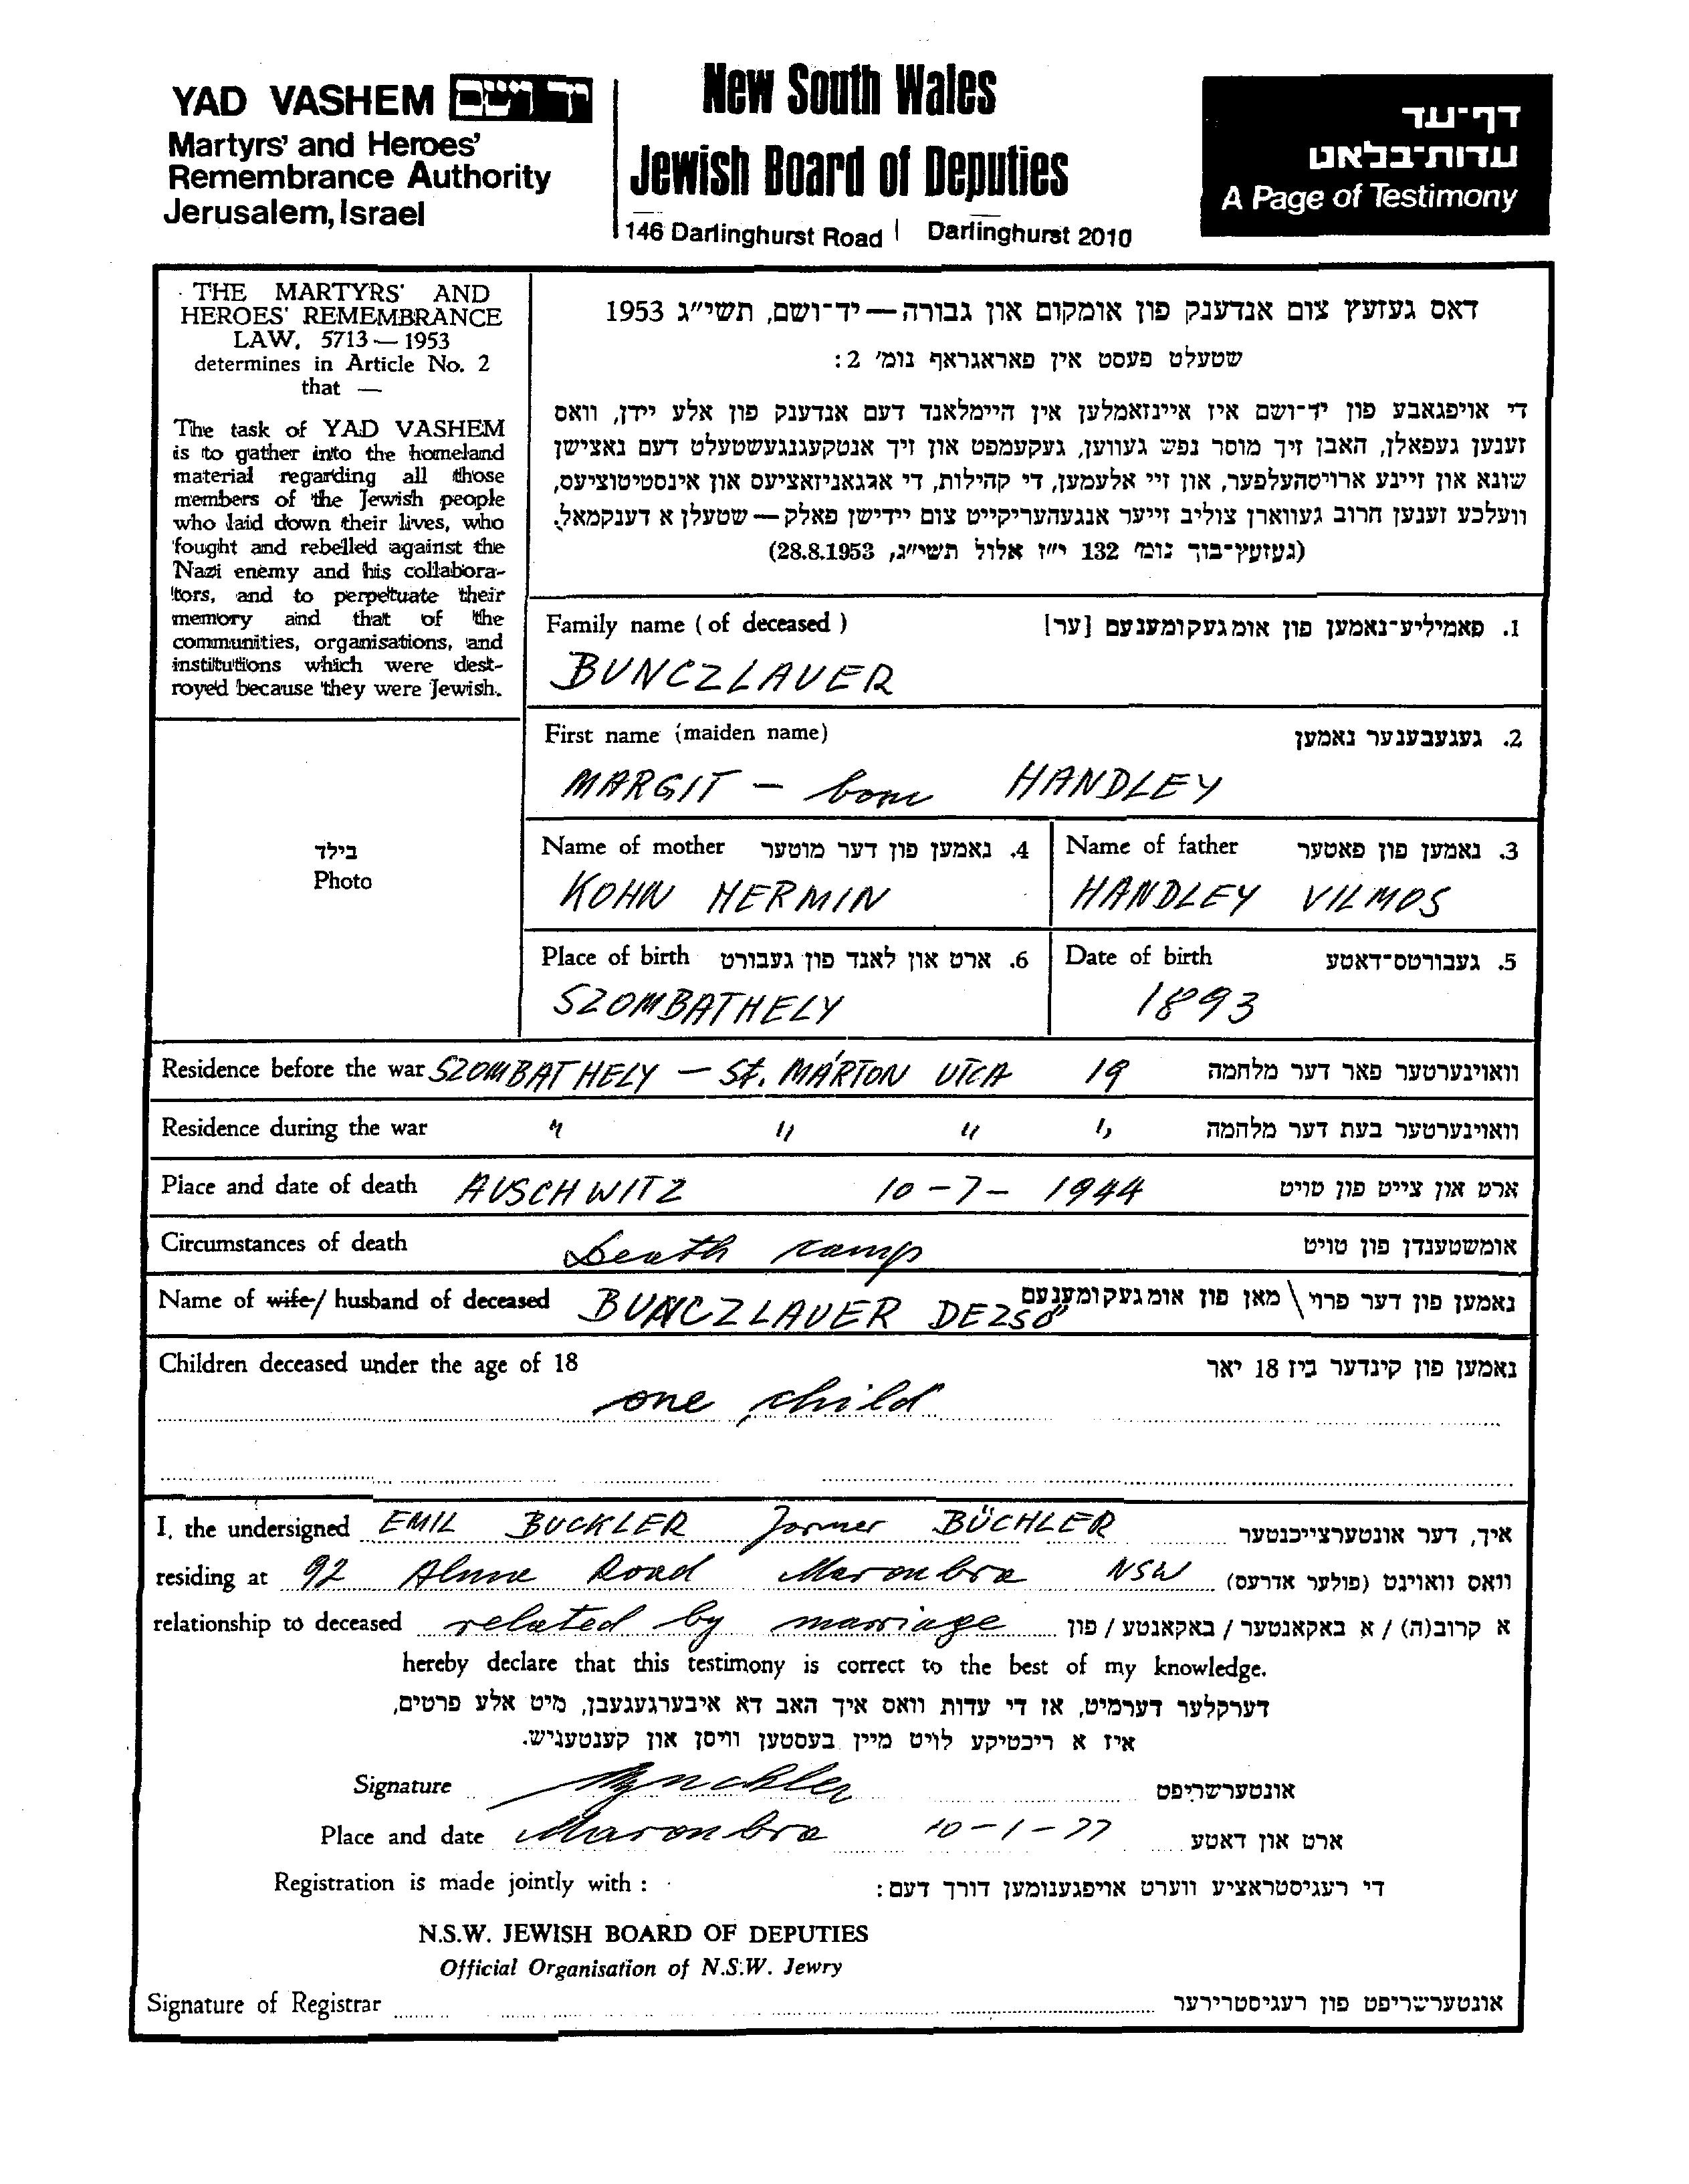 YAD VASHEM יד ושם
Martyrs' and Heroes'
Remembrance Authority
Jerusalem, Israel
New South Wales
Jewish Board of Deputies
146 Darlinghurst Road | Darlinghurst 2010
דף-עד
עדות-בלאט
A Page of Testimony
THE MARTYRS' AND
HEROES' REMEMBRANCE
LAW, 5713 — 1953
determines in Article No. 2
that —
The task of YAD VASHEM
is to gather into the homeland
material regarding all those
members of the Jewish people
who laid down their lives, who
fought and rebelled against the
Nazi enemy and his collabora-
tors, and to perpetuate their
memory and that of the
communities, organisations, and
institutions which were dest-
royed because they were Jewish.
דאס געזעץ צום אנדענק פון אומקום און גבורה — יד-ושם, תשי"ג 1953
שטעלט פעסט אין פאראגראף נומ' 2:
די אויפגאבע פון יד-ושם איז איינזאמלען אין היימלאנד דעם אנדענק פון אלע יידן, וואס
זענען געפאלן, האבן זיך מוסר נפש געווען, געקעמפט און זיך אנטקעגנגעשטעלט דעם נאצישן
שונא און זיינע ארויסהעלפער, און זיי אלעמען, די קהילות, די ארגאניזאציעס און אינסטיטוציעס,
וועלכע זענען חרוב געווארן צוליב זייער אנגעהעריקייט צום יידישן פאלק — שטעלן א דענקמאל.
(געזעץ-בוך נומ' 132 י"ז אלול תשי"ג, 28.8.1953)
Family name (of deceased) 1. פאמיליע-נאמען פון אומגעקומענעם [ער]
BUNCZLAUER
First name (maiden name) 2. געגעבענער נאמען
MARGIT — born HANDLEY
Name of mother 4. נאמען פון דער מוטער
KOHN HERMIN
Name of father 3. נאמען פון פאטער
HANDLEY VILMOS
Place of birth 6. ארט און לאנד פון געבורט
SZOMBATHELY
Date of birth 5. געבורטס-דאטע
1893
בילד
Photo
Residence before the war SZOMBATHELY — St. MÁRTON UTCA 19 וואוינערטער פאר דער מלחמה
Residence during the war " " " " וואוינערטער בעת דער מלחמה
Place and date of death AUSCHWITZ 10-7-1944 ארט און צייט פון טויט
Circumstances of death Death camp אומשטענדן פון טויט
Name of wife/ husband of deceased BUNCZLAUER DEZSŐ נאמען פון דער פרוי \ מאן פון אומגעקומענעם
Children deceased under the age of 18 נאמען פון קינדער ביז 18 יאר
one child
I, the undersigned EMIL BUCKLER former BÜCHLER איך, דער אונטערצייכנטער
residing at 92 Road Maroubra NSW וואס וואוינט (פולער אדרעס)
relationship to deceased related by marriage א קרוב(ה) / א באקאנטער / באקאנטע / פון
hereby declare that this testimony is correct to the best of my knowledge.
דערקלער דערמיט, אז די עדות וואס איך האב דא איבערגעגעבן, מיט אלע פרטים,
איז א ריכטיקע לויט מיין בעסטען וויסן און קענטעניש.
Signature אונטערשריפט
Place and date Maroubra 10-1-77 ארט און דאטע
Registration is made jointly with : די רעגיסטראציע ווערט אויפגענומען דורך דעם:
N.S.W. JEWISH BOARD OF DEPUTIES
Official Organisation of N.S.W. Jewry
Signature of Registrar אונטערשריפט פון רעגיסטרירער